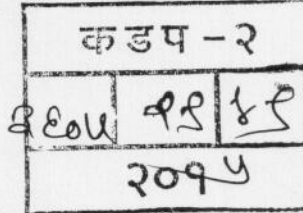 कडप - २
२६०५ १९ ४९
२०१५